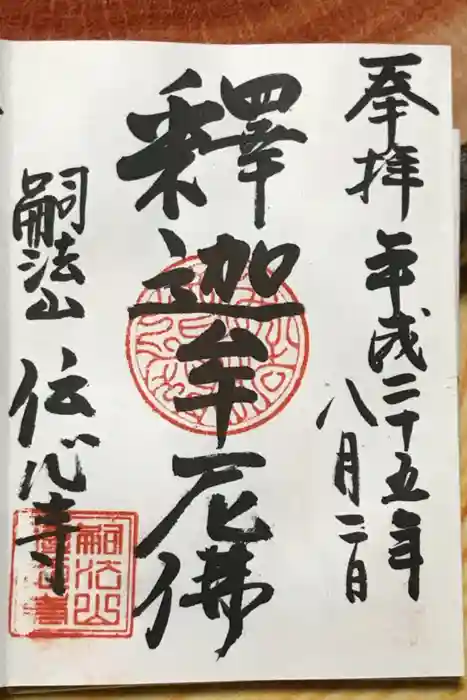 奉拝 平成二十五年
八月二日
釋迦牟尼佛
嗣法山 伝心寺